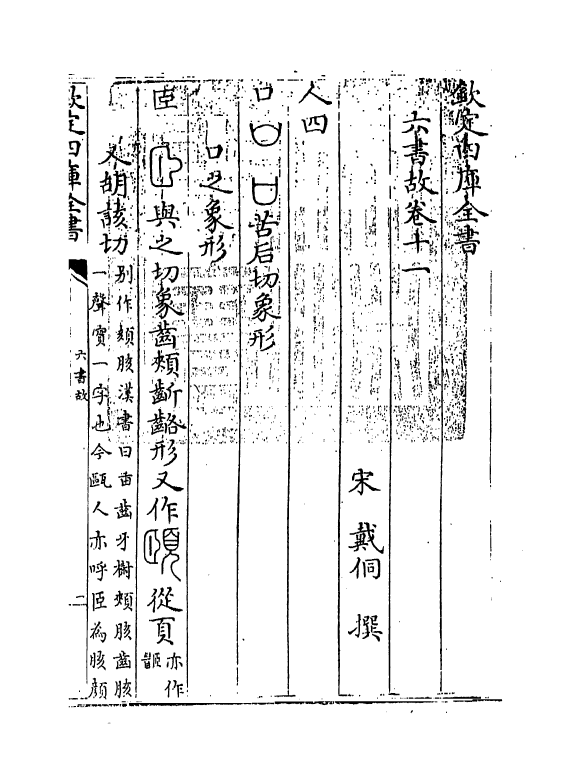 欽定四庫全書
六書故卷十一
宋 戴侗 撰
人四
口 苦后切象形
口之象形
𦣞 與之切象齒頰齗齶形又作 從頁亦作
又胡該切別作頦胲漢書曰臿齒牙樹頰胲齒胲
一聲實一字也今甌人亦呼𦣞為胲頦
欽定四庫全書
六書故
二